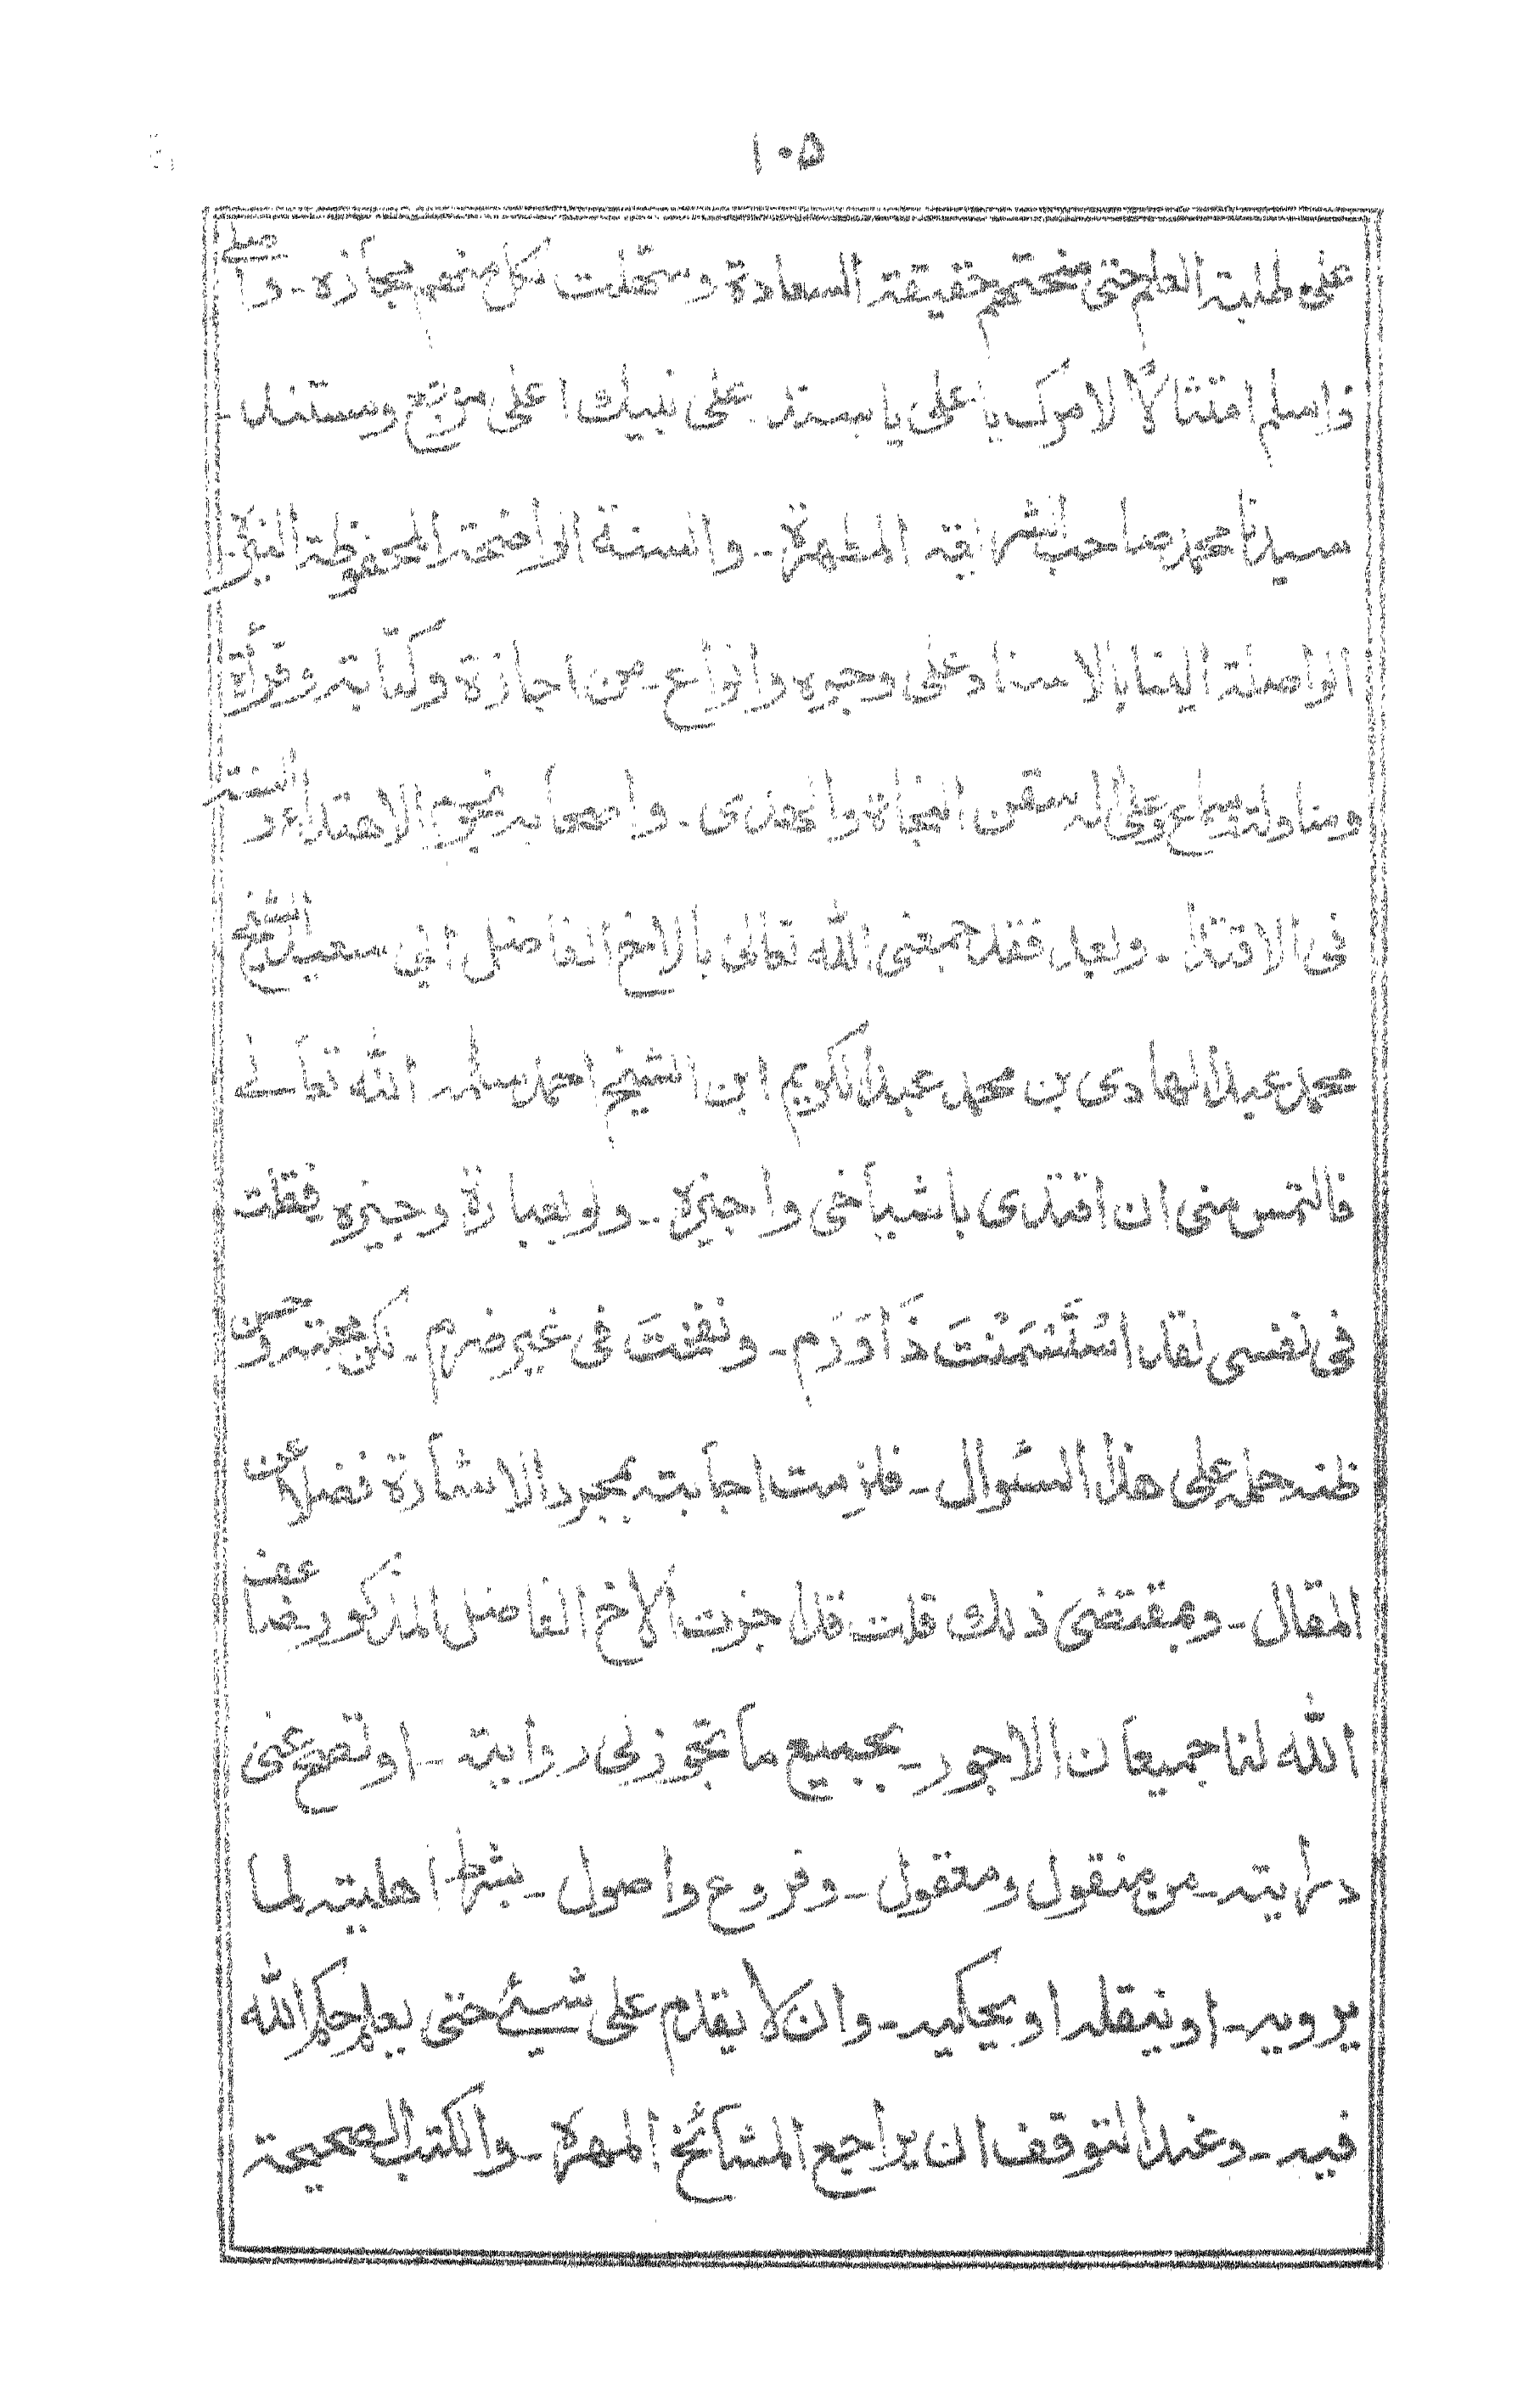 ۱۰۵
على طلبة العلم حتى منحتهم حقيقة السعادة وسهلت لكل منهم مجازه۔ واصلى
واسلم امتثالا لامرك يا على يا سند على نبيك اعلى مرتبع ومستند۔
سيدنا محمد صاحب الشرايقة المطهرة۔ والسنة الواضحة المحفوظة النيرة۔
الواصلة الينا بالاسناد على وجوه وانواع۔ من اجازة وكتابة وقرأة
ومناولة وسماع وعلى اله سفن النجاة والهدى۔ واصحابه نجوم الاهتداء والسنة
فى الاقتدا۔ وبعد فقد جمعنى الله تعالى بالاخ الفاضل ابي سعيد الشيخ
محمد عبد الهادى بن محمد عبد الكريم ابن الشيخ احمد سلمه الله تعالى
فالتمس منى ان اقتدى باشياخى واجيزه۔ ولو بعبارة وجيزه فقلت
فى نفسى لقد استسمنت ذا ورم۔ ونفخت فى غير ضرم۔ لكن محبته وحسن
ظنه حمله على هذا السئوال۔ فلزمت اجابته بمجرد الاشارة فضلا عن
المقال۔ وبمقتضى ذلك قلت قد اجزت الاخ الفاضل المذكور ضاعف
الله لنا جميعا ن الاجور۔ بجميع ما تجوز لى روايته۔ او تصح عنى
درايته۔ من منقول ومعقول۔ وفروع واصول۔ بشرط اهليته لما
يرويه۔ او ينقله او يحكيه۔ وان لا يقدم على شيئ حتى يعلم حكم الله
فيه۔ وعند التوقف ان يراجع المشائخ المهرة۔ والكتب الصحيحة